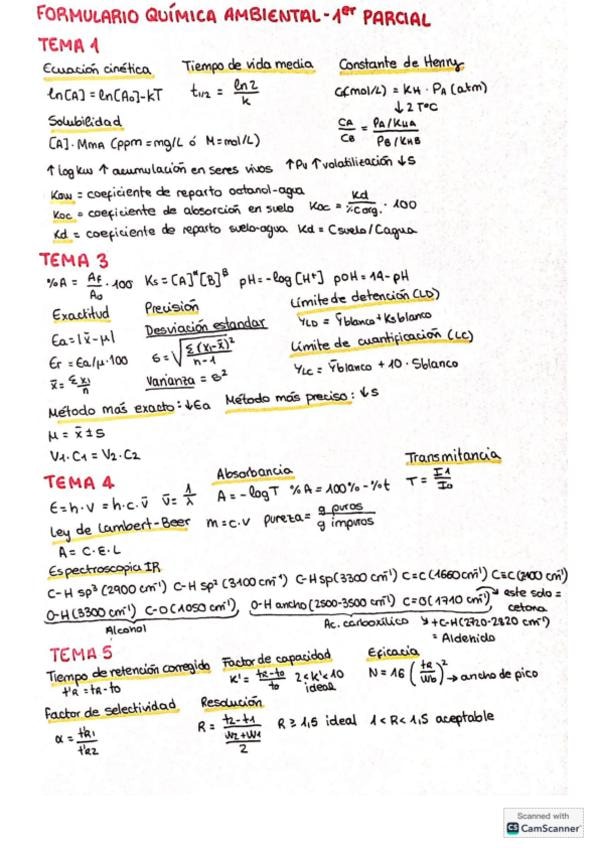 FORMULARIO QUÍMICA AMBIENTAL - 1er PARCIAL
TEMA 1
Ecuación cinética
ln[A] = ln[A0]-KT
Tiempo de vida media
t1/2 = ln2 / K
Constante de Henry
C(mol/L) = KH · PA (atm)
↓ 2 TºC
CA / CB = PA/KHA / PB/KHB
Solubilidad
[A]· MmA (ppm = mg/L ó M=mol/L)
↑ log Kow ↑ acumulación en seres vivos ↑ Pv ↑ volatilización ↓S
Kow = coeficiente de reparto octanol-agua
Koc = coeficiente de absorción en suelo Koc = Kd / %Corg. · 100
Kd = coeficiente de reparto suelo-agua Kd = Csuelo/Cagua
TEMA 3
%A = Af / A0 · 100 Ks = [A]^α [B]^β pH = -log [H+] pOH = 14-pH
Exactitud
Ea = |x̄ - μ|
Er = Ea/μ · 100
x̄ = Σxi / n
Precisión
Desviación estandar
s = √ Σ(xi-x̄)² / n-1
Varianza = s²
Límite de detención (LD)
YLD = Ȳblanco + Ksblanco
Límite de cuantificación (LC)
YLC = Ȳblanco + 10 · Sblanco
Método más exacto: ↓Ea Método más preciso: ↓s
μ = x̄ ± s
V1 · C1 = V2 · C2
TEMA 4
E = h · ν = h · c · ν̄ ν̄ = 1 / λ
Absorbancia
A = -log T %A = 100% - %t
Transmitancia
T = I1 / I0
Ley de Lambert-Beer
A = C · E · L
m = c · v pureza = g puros / g impuros
Espectroscopia IR
C-H sp³ (2900 cm⁻¹) C-H sp² (3100 cm⁻¹) C-H sp (3300 cm⁻¹) C=C (1660 cm⁻¹) C≡C (2100 cm⁻¹)
O-H (3300 cm⁻¹) C-O (1050 cm⁻¹), O-H ancho (2500-3500 cm⁻¹) C=O (1710 cm⁻¹) → este solo = cetona
Alcohol
Ac. carboxílico
↘ + C-H (2720-2820 cm⁻¹) = Aldehido
TEMA 5
Tiempo de retención corregido
t'R = tR - t0
Factor de capacidad
K' = tR-t0 / t0 2<K'<10 ideal
Eficacia
N = 16 (tR / Wb)² → ancho de pico
Factor de selectividad
α = t'R1 / t'R2
Resolución
R = t2-t1 / W2+W1 / 2 R ≥ 1,5 ideal 1<R<1,5 aceptable
Scanned with
CS CamScanner